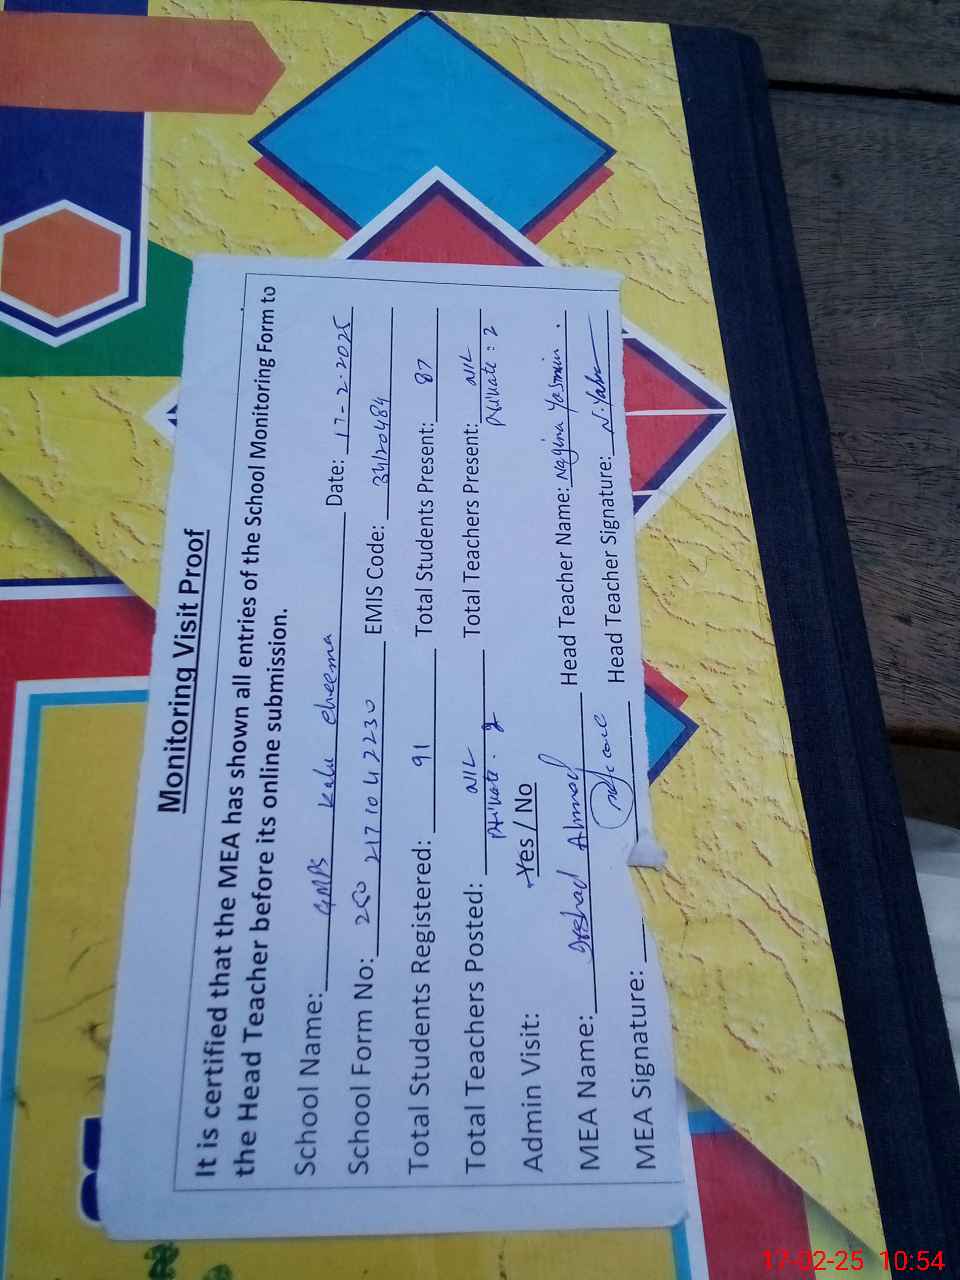 Monitoring Visit Proof
It is certified that the MEA has shown all entries of the School Monitoring Form to
the Head Teacher before its online submission.
School Name: GMPS Kalu Cheema Date: 17-2-2025
School Form No: 250 217104 2230 EMIS Code: 34120484
Total Students Registered: 91 Total Students Present: 87
Total Teachers Posted: NIL Total Teachers Present: NIL
Private: 2 Private: 2
Admin Visit: Yes / No
MEA Name: Irshad Ahmad Head Teacher Name: Nagina Yasmin.
MEA Signature: Head Teacher Signature:
17-02-25 10:54